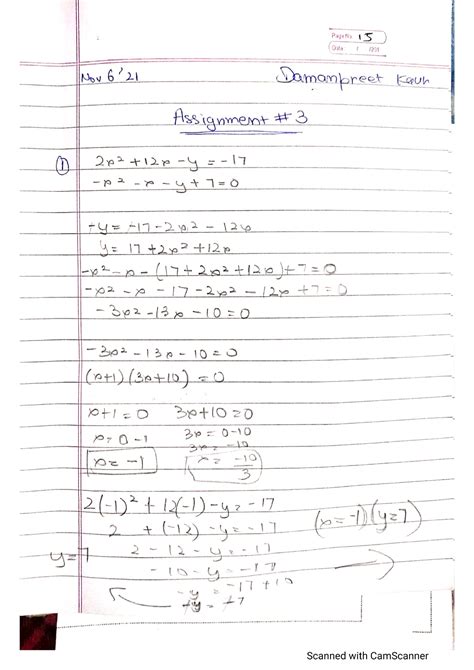 Page No. 15
Date / /201
Nov 6'21 Damanpreet Kaur
Assignment #3
① 2x² + 12x - y = -17
-x² - x - y + 7 = 0
-y = -17 - 2x² - 12x
y = 17 + 2x² + 12x
-x² - x - (17 + 2x² + 12x) + 7 = 0
-x² - x - 17 - 2x² - 12x + 7 = 0
-3x² - 13x - 10 = 0
-3x² - 13x - 10 = 0
(x+1) (3x+10) = 0
x+1 = 0 3x+10 = 0
x = 0-1 3x = 0-10
3x = -10
x = -1 x = -10/3
2(-1)² + 12(-1) - y = -17
2 + (-12) - y = -17 (x=-1) (y=7)
y=7 2 - 12 - y = -17
-10 - y = -17
-y = -17+10
+y = +7
Scanned with CamScanner